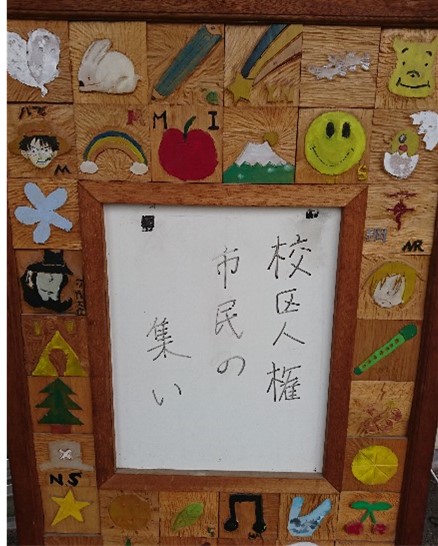 校区人権
市民の
集い
M I
M
S
NR
NS